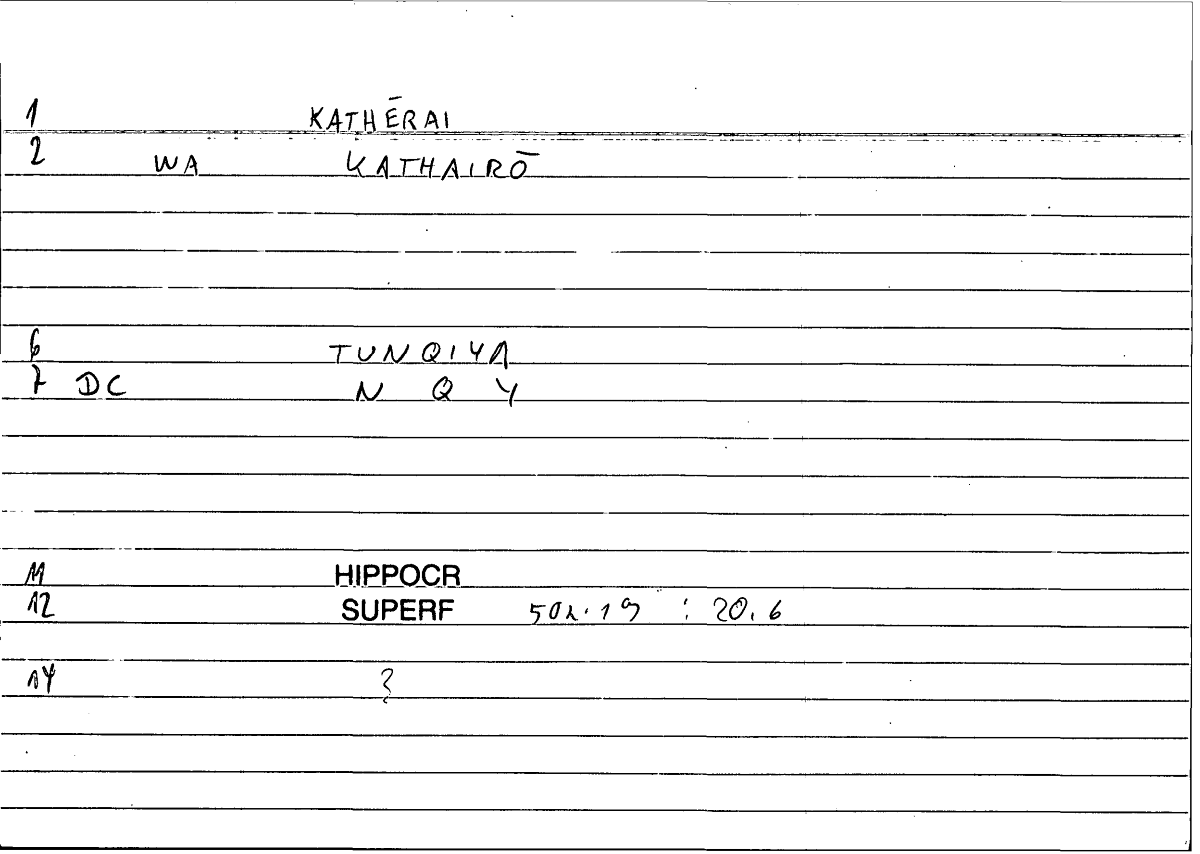 1 KATHĒRAI
2 WA KATHAIRŌ
6 TUNQIYA
7 DC N Q Y
11 HIPPOCR
12 SUPERF 502.19 : 20.6
14 ?